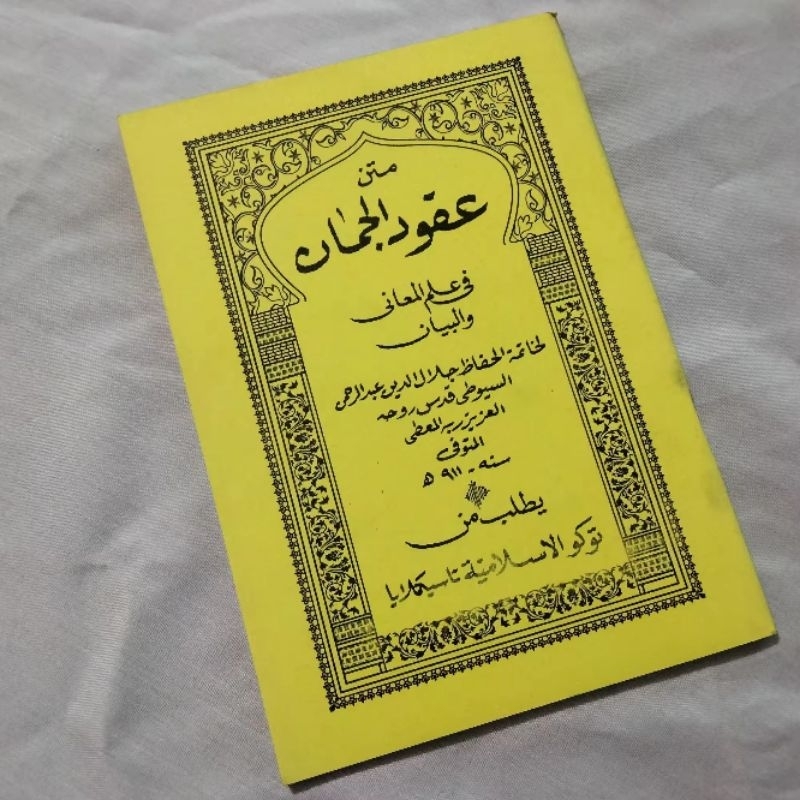 متن
عقود الجمان
فى علم المعانى
والبيان
لخاتمة الحفاظ جلال الدين عبد الرحمن
السيوطى قدس روحه
العزيز ربه المعطى
المتوفى
سنه - ٩١١ ه
يطلب من
توكو الاسلامية تاسيكملايا